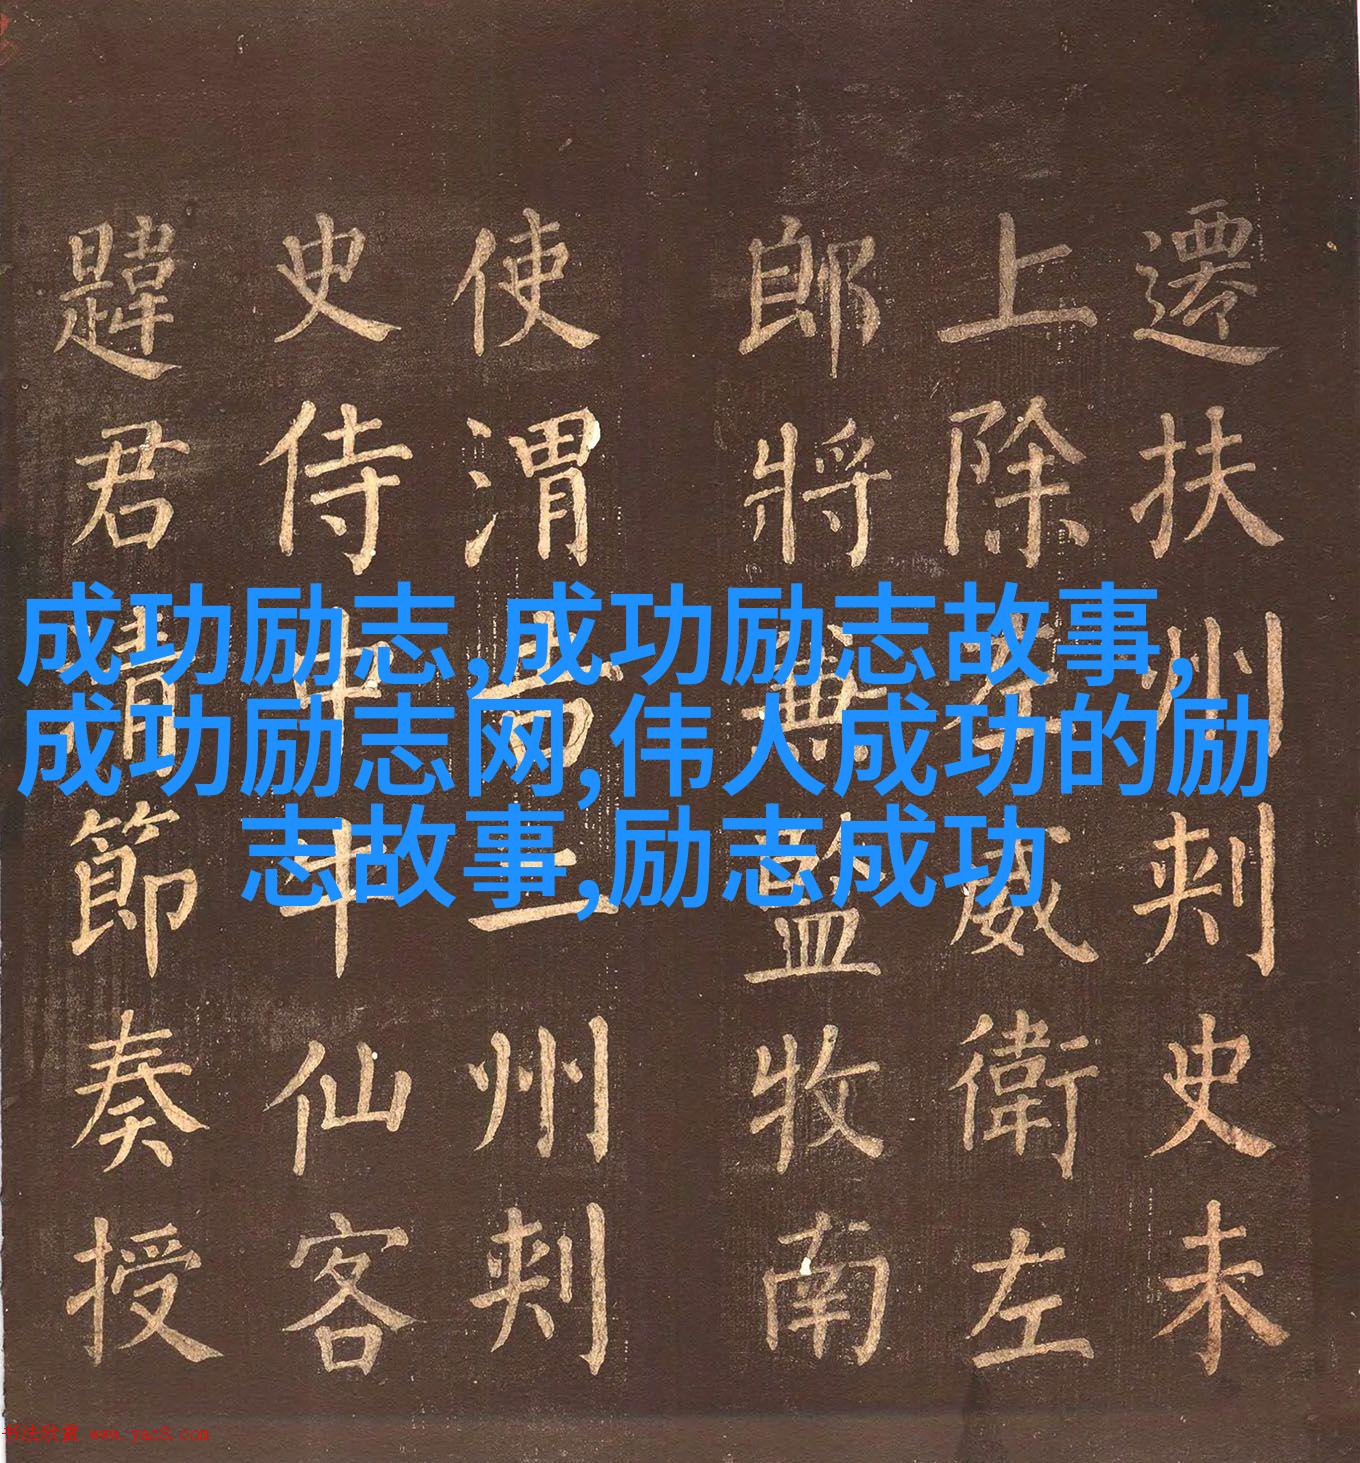 遷扶州刾史未
上除左威衛左
郎將兼監牧南
使渭州刾
史侍中牛仙客
韙君清節奏授
成功励志,成功励志故事,
成功励志网,伟人成功的励
志故事,励志成功
书法欣赏 www.yac8.com